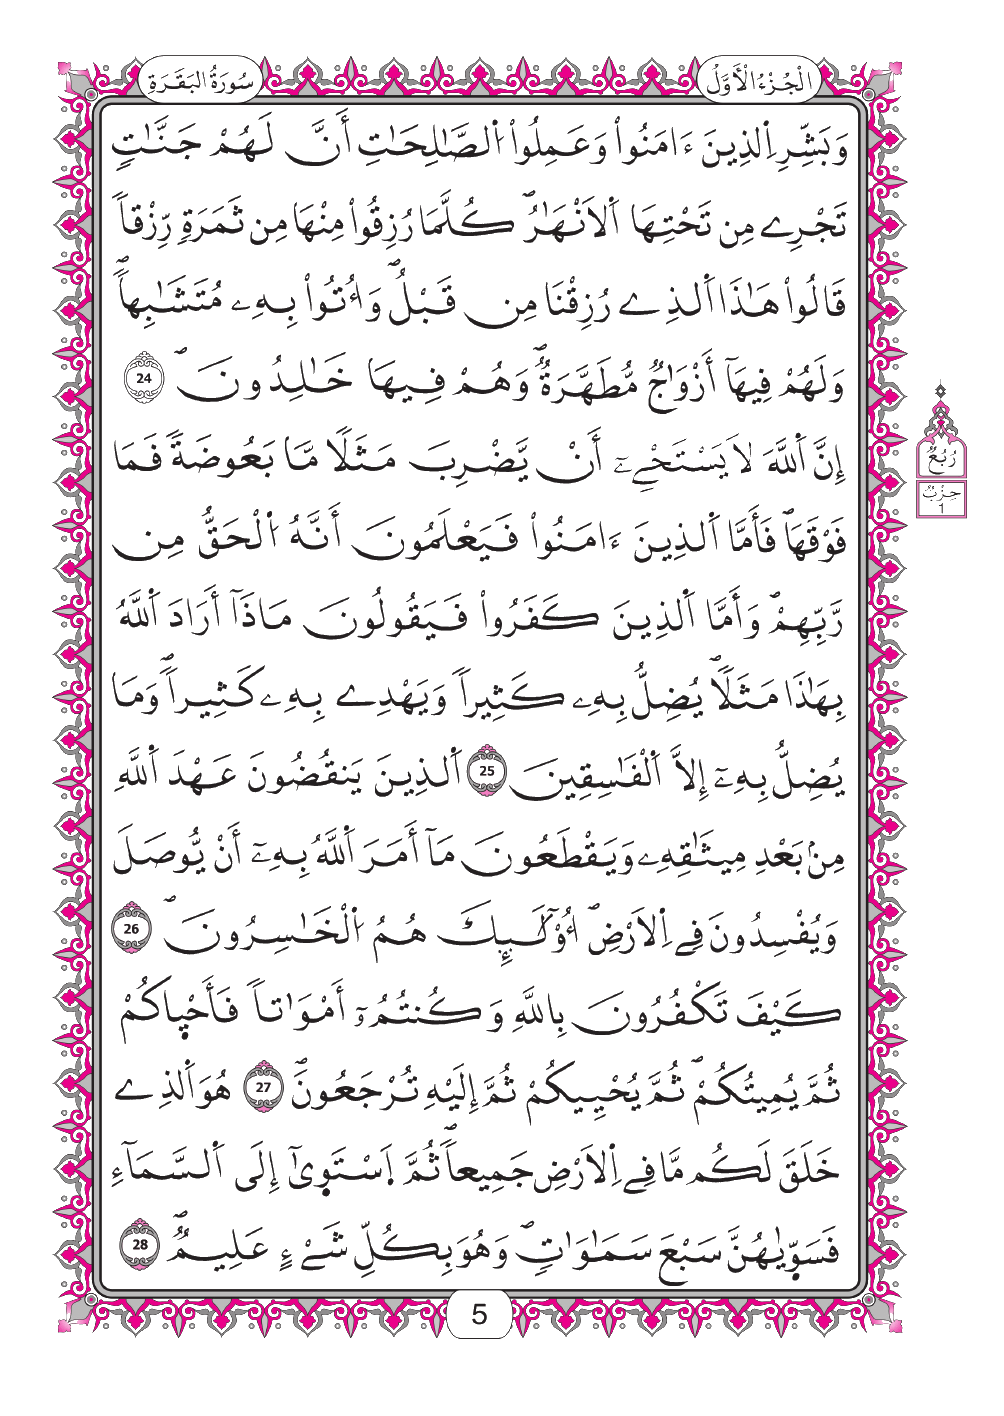 الْجُزْءُ الْأَوَّلُ
سُورَةُ الْبَقَرَةِ
وَبَشِّرِ اِ۬لذِينَ ءَامَنُواْ وَعَمِلُواْ اُ۬لصَّٰلِحَٰتِ أَنَّ لَهُمْ جَنَّٰتٖ
تَجْرِے مِن تَحْتِهَا اَ۬لَانْهَٰرُۖ كُلَّمَا رُزِقُواْ مِنْهَا مِن ثَمَرَةٖ رِّزْقاٗ
قَالُواْ هَٰذَا اَ۬لذِے رُزِقْنَا مِن قَبْلُۖ وَأُتُواْ بِهِۦ مُتَشَٰبِهاٗۖ
وَلَهُمْ فِيهَآ أَزْوَٰجٞ مُّطَهَّرَةٞۖ وَهُمْ فِيهَا خَٰلِدُونَۖ 24
إِنَّ اَ۬للَّهَ لَا يَسْتَحْيِۦٓ أَنْ يَّضْرِبَ مَثَلاٗ مَّا بَعُوضَةٗ فَمَا
فَوْقَهَاۖ فَأَمَّا اَ۬لذِينَ ءَامَنُواْ فَيَعْلَمُونَ أَنَّهُ اُ۬لْحَقُّ مِن
رَّبِّهِمْۖ وَأَمَّا اَ۬لذِينَ كَفَرُواْ فَيَقُولُونَ مَاذَآ أَرَادَ اَ۬للَّهُ
بِهَٰذَا مَثَلاٗۖ يُضِلُّ بِهِۦ كَثِيراٗ وَيَهْدِے بِهِۦ كَثِيراٗۖ وَمَا
يُضِلُّ بِهِۦٓ إِلَّا اَ۬لْفَٰسِقِينَ 25 اَ۬لذِينَ يَنقُضُونَ عَهْدَ اَ۬للَّهِ
مِنۢ بَعْدِ مِيثَٰقِهِۦ وَيَقْطَعُونَ مَآ أَمَرَ اَ۬للَّهُ بِهِۦٓ أَنْ يُّوصَلَ
وَيُفْسِدُونَ فِے اِ۬لَارْضِۖ أُوْلَٰٓئِكَ هُمُ اُ۬لْخَٰسِرُونَۖ 26
كَيْفَ تَكْفُرُونَ بِاللَّهِ وَكُنتُمُۥٓ أَمْوَٰتاٗ فَأَحْيٜاكُمْ
ثُمَّ يُمِيتُكُمْۖ ثُمَّ يُحْيِيكُمْ ثُمَّ إِلَيْهِ تُرْجَعُونَۖ 27 هُوَ اَ۬لذِے
خَلَقَ لَكُم مَّا فِے اِ۬لَارْضِ جَمِيعاٗۖ ثُمَّ اَ۪سْتَوٜىٰٓ إِلَى اَ۬لسَّمَآءِ
فَسَوّٜىٰهُنَّ سَبْعَ سَمَٰوَٰتٖۖ وَهُوَ بِكُلِّ شَےْءٍ عَلِيمٞۖ 28
رُبُعُ
حِزْبٌ
1
5